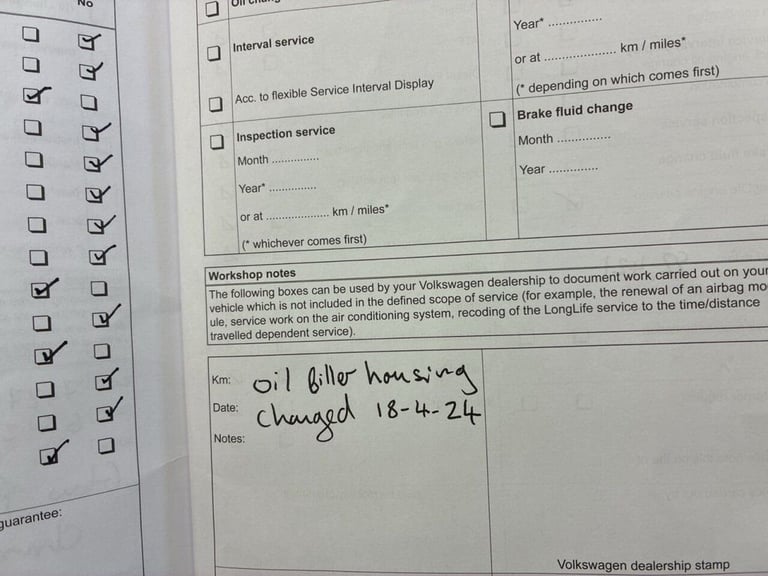 No
Interval service
Acc. to flexible Service Interval Display
Inspection service
Month ...............
Year* ...............
or at .................... km / miles*
(* whichever comes first)
Year* ...............
or at .................... km / miles*
(* depending on which comes first)
Brake fluid change
Month ...............
Year ..............
Workshop notes
The following boxes can be used by your Volkswagen dealership to document work carried out on your
vehicle which is not included in the defined scope of service (for example, the renewal of an airbag mo
ule, service work on the air conditioning system, recoding of the LongLife service to the time/distance
travelled dependent service).
Km: oil filler housing
Date: changed 18-4-24
Notes:
guarantee:
Volkswagen dealership stamp